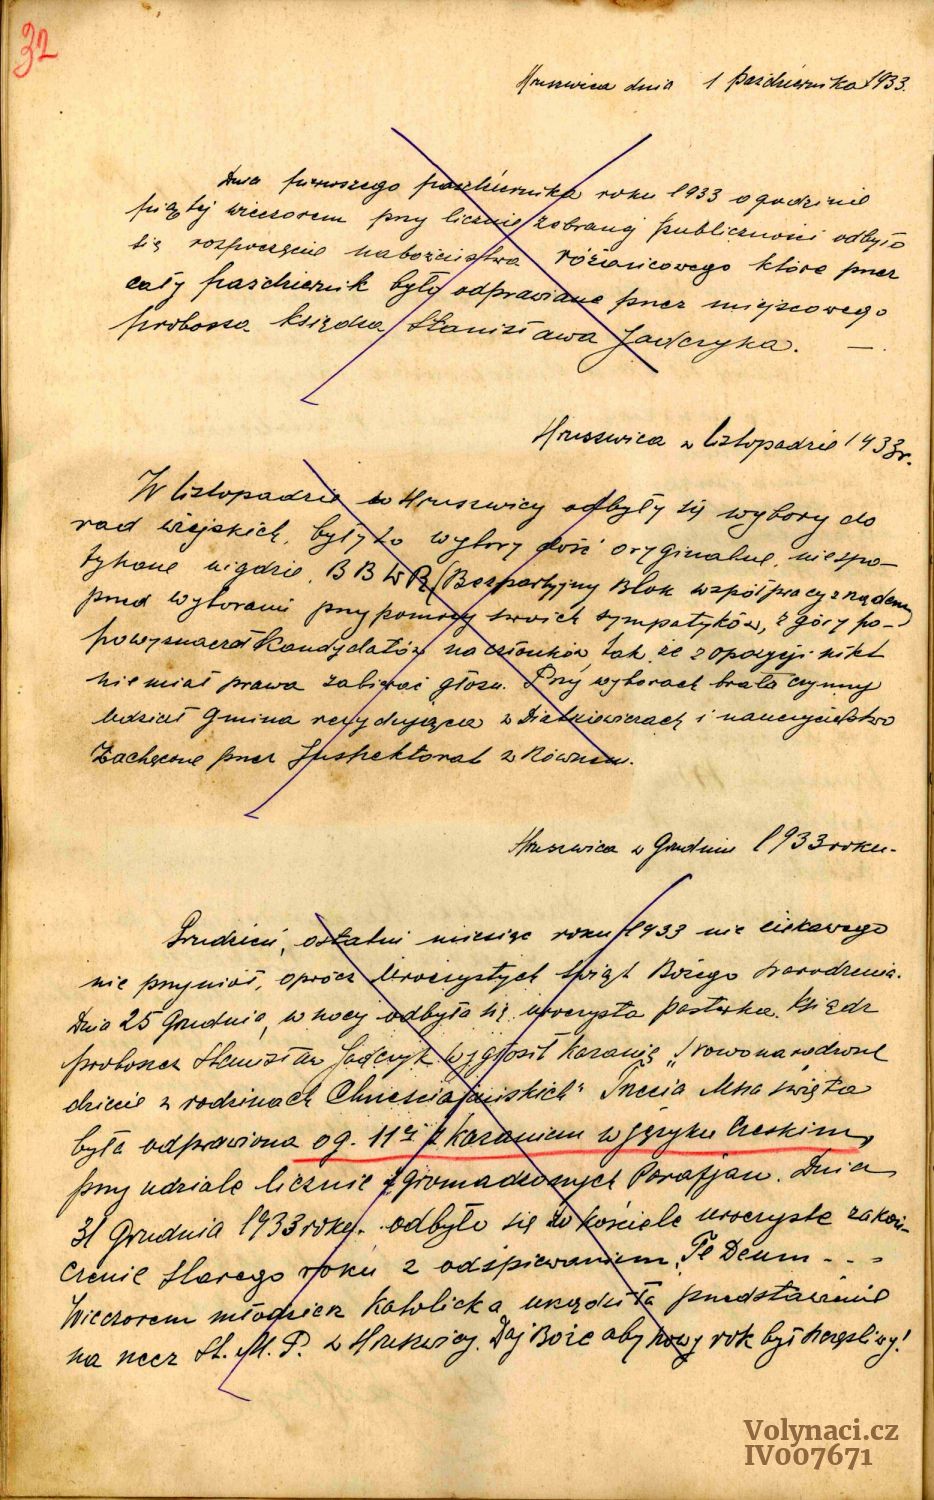 32
Hruszwica dnia 1 Października 1933.
Dnia pierwszego października roku 1933 o godzinie
piątej wieczorem przy licznie zebranej publiczności odbyło
się rozpoczęcie nabożeństwa różańcowego które przez
cały październik było odprawiane przez miejscowego
probosza księdza Stanisława Jadczyka. —.
Hruszwica w listopadzie 1933r.
W listopadzie w Hruszwicy odbyły się wybory do
rad wiejskich, były to wybory dość oryginalne, niespo-
tykane nigdzie. B B W R (Bezpartyjny Blok współpracy z rządem)
przed wyborami przy pomocy swoich sympatyków, z góry po-
powyznaczał kandydatów na członków, tak że z opozycji nikt
nie miał prawa zabierać głosu. Przy wyborach brała czynny
udział Gmina rezydująca w Diatkiewiczach i nauczycielstwo
Zachęcone przez Inspektorat w Równem.
Hruszwica w Grudniu 1933 roku.
Grudzień, ostatni miesiąc roku 1933 nic ciekawego
nie przyniósł, oprócz Uroczystych Świąt Bożego Narodzenia.
Dnia 25 Grudnia, w nocy odbyła się uroczysta Pasterka. Ksiądz
proboszcz Stanisław Jadczyk wygłosił kazanie „Nowonarodzone
dziecie w rodzinach Chrześcijańskich" Trzecia Msza święta
była odprawiona o g. 11ej z kazaniem w języku Czeskim,
przy udziale licznie zgromadzonych Parafjan. Dnia
31 Grudnia 1933 roku. odbyło się w kościele uroczyste zakoń-
czenie starego roku z odśpiewaniem „Te Deum - - -
Wieczorem młodzież Katolicka urządziła przedstawienie
na rzecz St. M. P. w Hruszwicy. Daj Boże aby nowy rok był szczęśliwy!
Volynaci.cz
IV007671